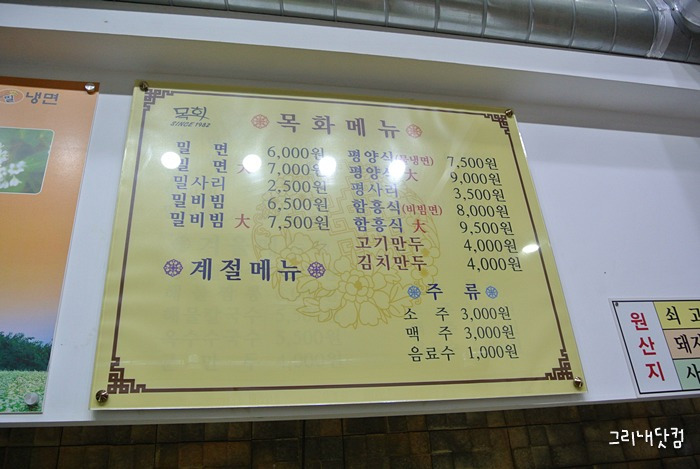 밀 냉면
목화
SINCE 1982
목화메뉴
밀 면 6,000원
밀 면 大 7,000원
밀사리 2,500원
밀비빔 6,500원
밀비빔 大 7,500원
평양식(물냉면) 7,500원
평양식 大 9,000원
평사리 3,500원
함흥식(비빔면) 8,000원
함흥식 大 9,500원
고기만두 4,000원
김치만두 4,000원
계절메뉴
주 류
소 주 3,000원
맥 주 3,000원
음료수 1,000원
원산지
쇠고
돼지
사
그리내닷컴